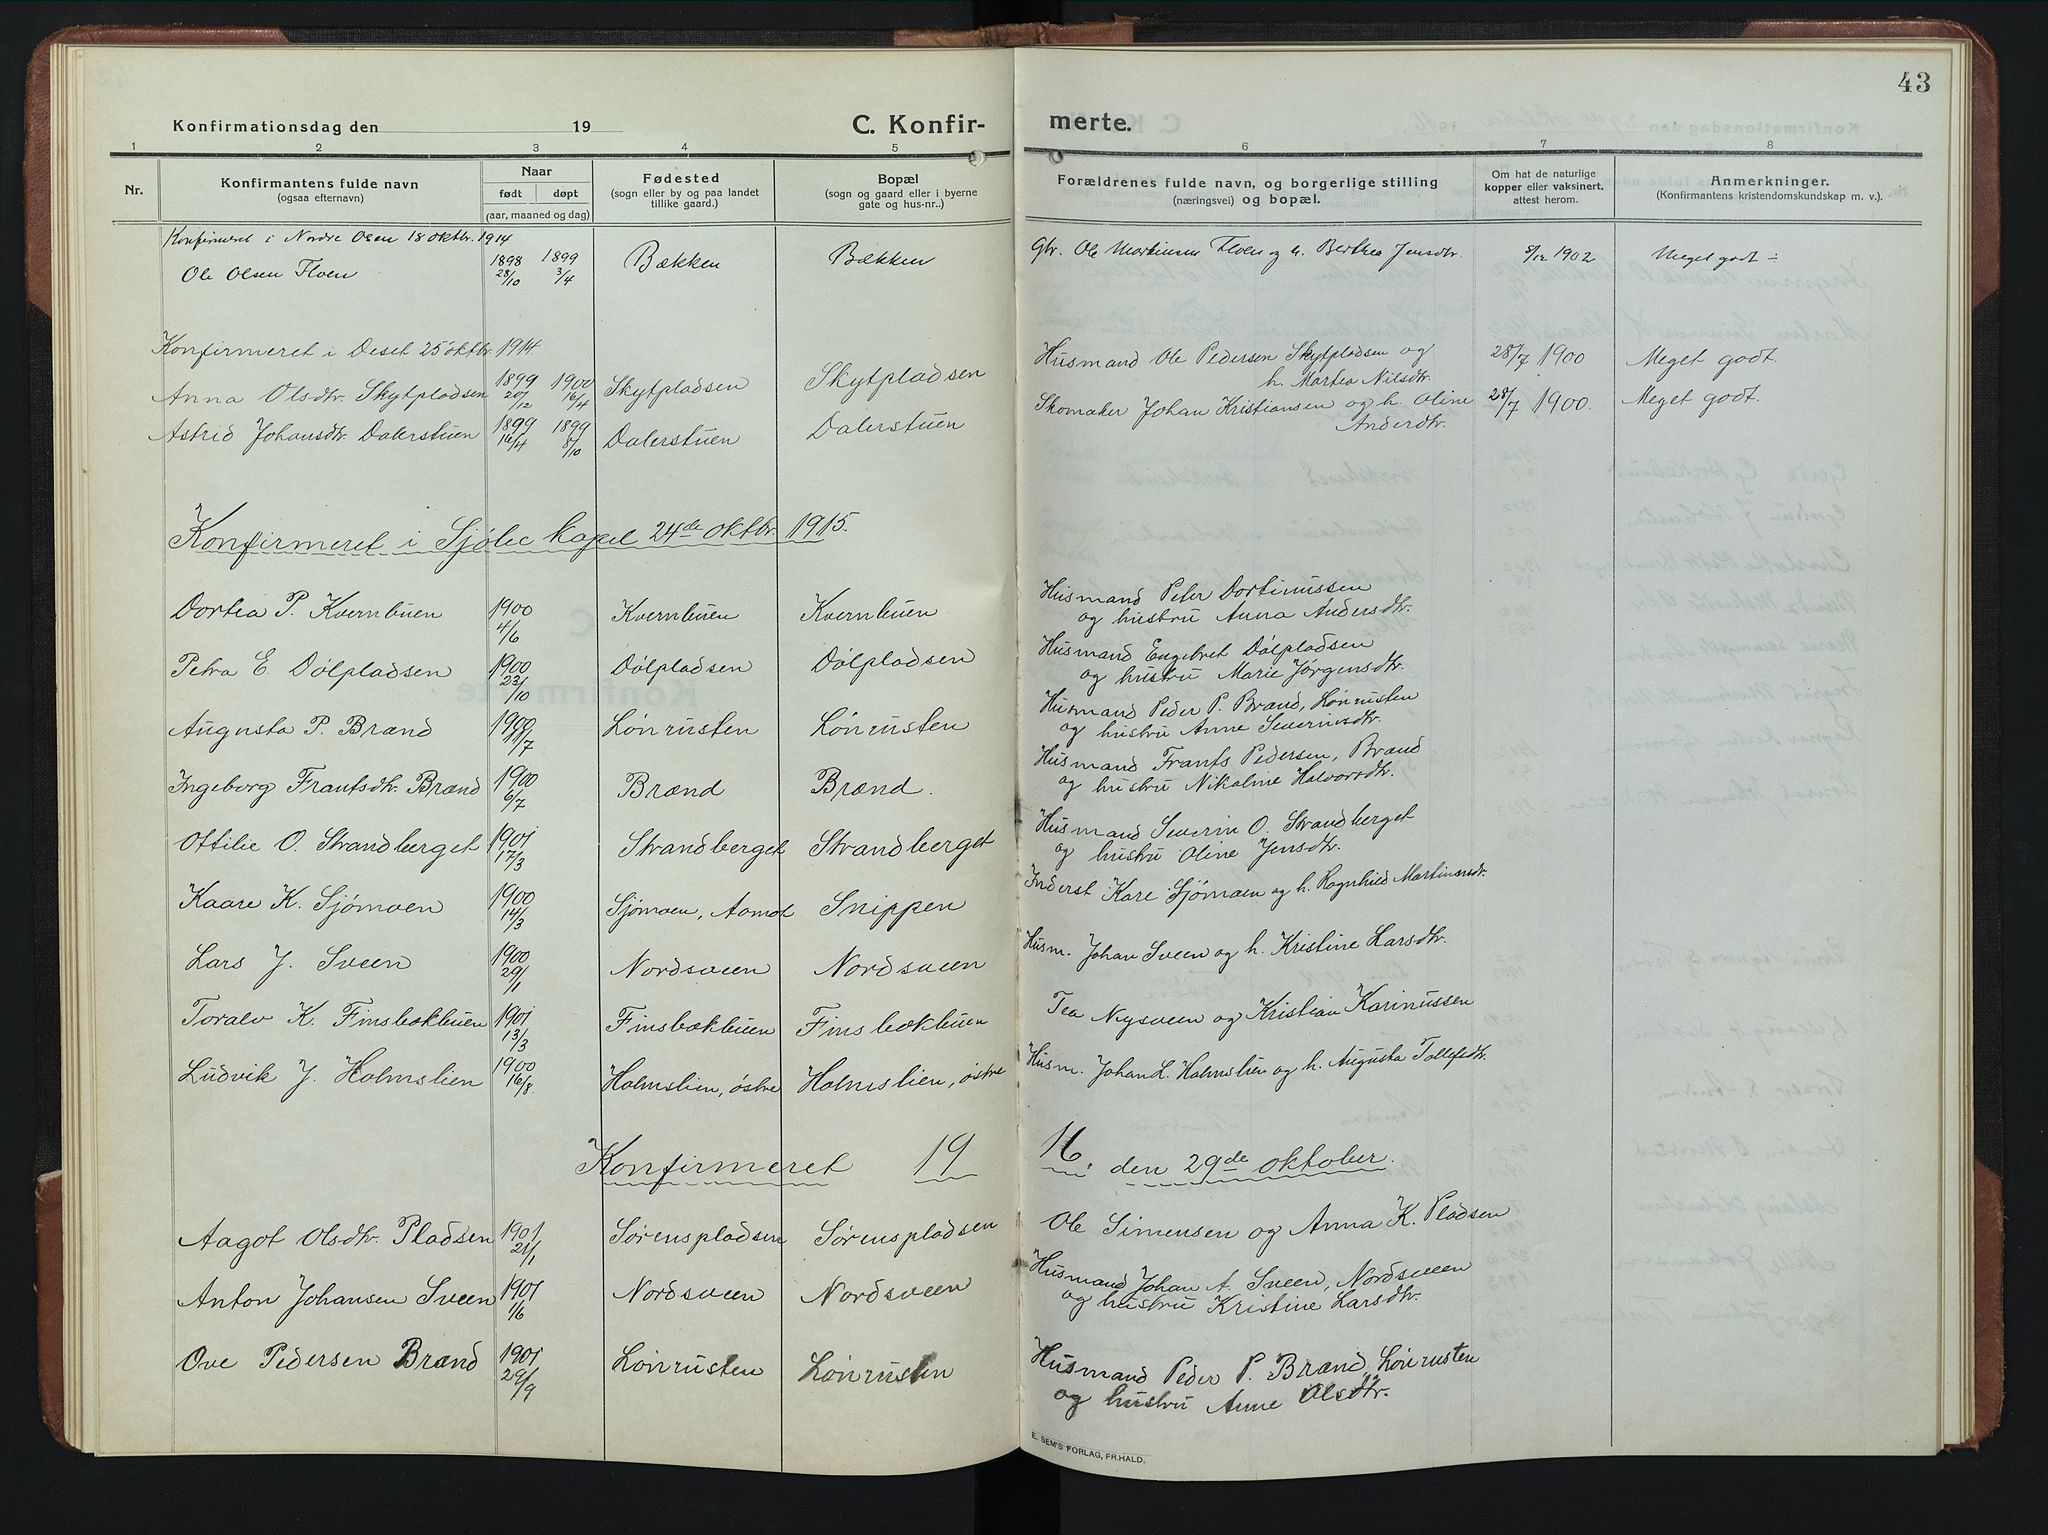 43
Konfirmationsdag den 19
C. Konfir- merte.
1 2 3 4 5 6 7 8
Nr.
Konfirmantens fulde navn (ogsaa efternavn)
Naar født døpt (aar, maaned og dag)
Fødested (sogn eller by og paa landet tillike gaard.)
Bopæl (sogn og gaard eller i byerne gate og hus-nr..)
Forældrenes fulde navn, og borgerlige stilling (næringsvei) og bopæl.
Om hat de naturlige kopper eller vaksinert, attest herom.
Anmerkninger. (Konfirmantens kristendomskundskap m. v.).
Konfirmeret i Nordre Osen 18 oktbr. 1914
Ole Olsen Floen 1898 28/10 1899 3/4 Bækken Bækken Gbr. Ole Martinsen Floen og h. Berthea Jensdtr. 8/12 1902 Meget godt ÷
Konfirmeret i Deset 25 oktbr. 1914.
Anna Olsdtr. Skytpladsen 1899 20/12 1900 16/4 Skytpladsen Skytpladsen Husmand Ole Pedersen Skytpladsen og h. Martea Nilsdtr. 28/7 1900 Meget godt.
Astrid Johansdtr. Dalerstuen 1899 16/4 1899 8/10 Dalerstuen Dalerstuen Skomaker Johan Kristiansen og h. Oline Anderdtr. 28/7 1900. Meget godt.
Konfirmeret i Sjølie kapel 24de oktbr. 1915.
Dortea P. Kvernbuen 1900 4/6 Kvernbuen Kvernbuen Husmand Peter Dortinussen og hustru Anna Andersdtr.
Petra E. Dølpladsen 1900 23/10 Dølpladsen Dølpladsen Husmand Engebret Dølpladsen og hustru Marie Jørgensdtr.
Augusta P. Brænd 1900 /7 Lønrusten Lønrusten Husmand Peder P. Brænd, Lønrusten og hustru Anne Severinsdtr.
Ingeborg Frantsdtr. Brænd 1900 6/7 Brænd Brænd. Husmand Frants Pedersen, Brænd og hustru Nikoline Halvorsdtr.
Ottilie O. Strandberget 1901 17/3 Strandberget Strandberget Husmand Severin O. Strandberget og hustru Oline Jensdtr.
Kaare K. Sjømoen 1900 14/3 Sjømoen, Aamot Snippen Inderst Kare Sjømoen og h. Ragnhild Martinusdtr.
Lars J. Sveen 1900 29/1 Nordsveen Nordsveen Husm. Johan Sveen og h. Kristine Larsdtr.
Toralv K. Finsbækbuen 1901 13/3 Finsbækbuen Finsbækbuen Tea Nysveen og Kristian Karinussen
Ludvik J. Holmslien 1900 16/8. Holmslien, østre Holmslien, østre Husm. Johan L. Holmslien og h. Augusta Tollefsdtr.
Konfirmeret 1916. den 29de oktober.
Aagot Olsdtr. Pladsen 1901 21/1 Sørenspladsen Sørenspladsen Ole Simensen og Anna K. Pladsen
Anton Johansen Sveen 1901 1/6 Nordsveen Nordsveen Husmand Johan A. Sveen, Nordsveen og hustru Kristine Larsdtr.
Ove Pedersen Brænd 1901 29/9 Lønrusten Lønrusten Husmand Peder P. Brænd, Lønrusten og hustru Anne Olsdtr.
E. SEM'S FORLAG, FR.HALD.